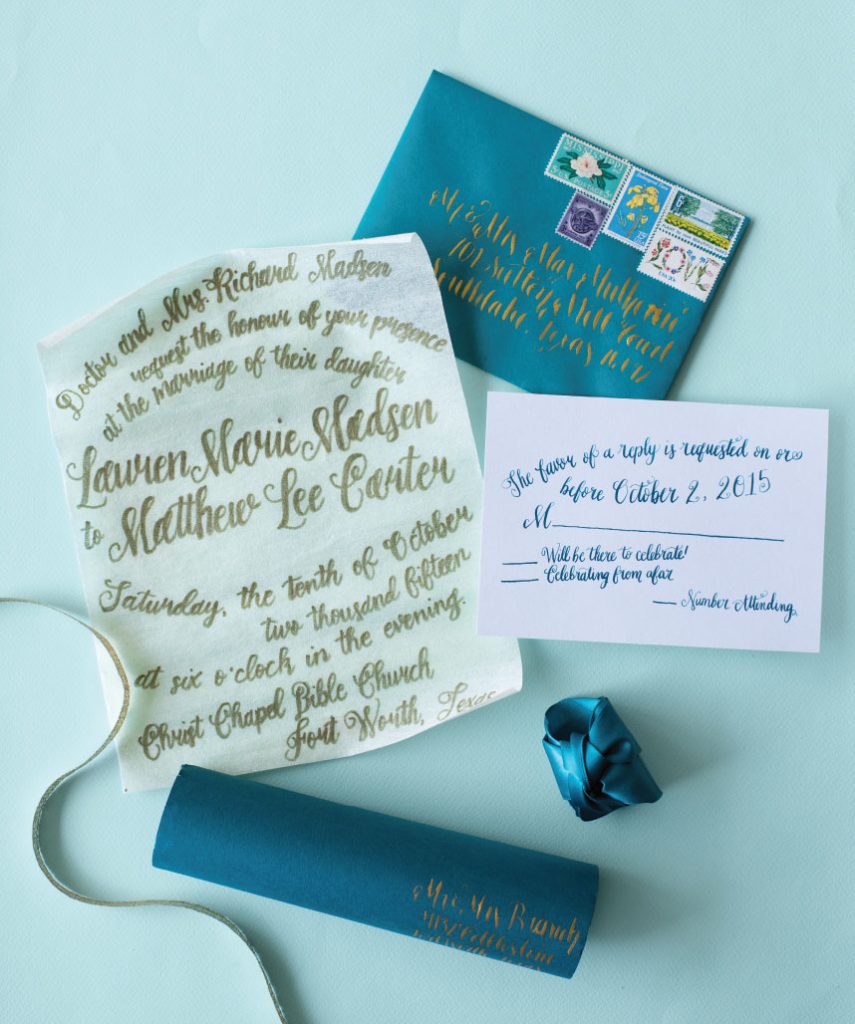 Doctor and Mrs. Richard Madsen
request the honour of your presence
at the marriage of their daughter
Lauren Marie Madsen
to Matthew Lee Carter
Saturday, the tenth of October
two thousand fifteen
at six o'clock in the evening.
Christ Chapel Bible Church
Fort Worth, Texas
MISSISSIPPI
LOVE
Mr & Mrs Max Mulherin
101 Mill Court
Southlake, Texas
The favor of a reply is requested on or
before October 2, 2015
M
Will be there to celebrate!
Celebrating from afar
Number Attending
Mr & Mrs Branch